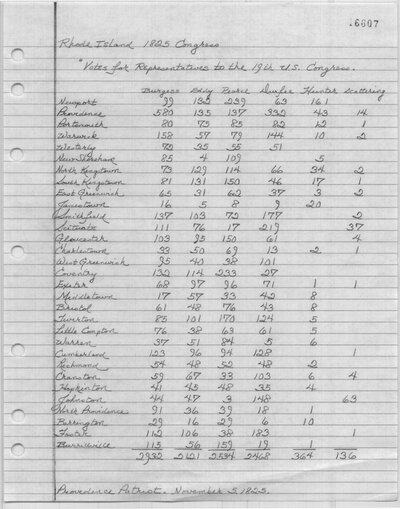 .6607
Rhode Island 1825 Congress
"Votes for Representatives to the 19th U.S. Congress.
Burgess Eddy Pearce Durfee Hunter Scattering
Newport 99 135 239 63 161
Providence 580 135 137 332 43 14
Portsmouth 80 75 85 82 12 1
Warwick 158 57 79 144 10 2
Westerly 70 35 55 51
New Shoreham 85 4 109 5
North Kingstown 73 129 114 66 34 2
South Kingstown 81 131 150 46 17 1
East Greenwich 65 31 62 37 3 2
Jamestown 16 5 8 9 20
Smithfield 137 103 72 177 2
Scituate 111 76 17 219 37
Gloucester 103 95 150 61 4
Charlestown 33 50 69 13 2 1
West Greenwich 95 40 38 101
Coventry 132 114 233 27
Exeter 68 97 96 71 1 1
Middletown 17 57 33 42 8
Bristol 61 48 76 43 8
Tiverton 85 101 170 124 5
Little Compton 76 38 63 61 5
Warren 37 51 84 5 6
Cumberland 123 96 94 128 1
Richmond 54 48 52 48 2
Cranston 59 67 33 103 6 4
Hopkinton 41 45 48 35 4
Johnston 44 47 3 148 63
North Providence 91 36 39 18 1
Barrington 29 16 29 6 10
Foster 112 106 38 183 1
Burrillville 115 56 159 19 1
2932 2121 2534 2468 364 136
Providence Patriot. November 5, 1825.